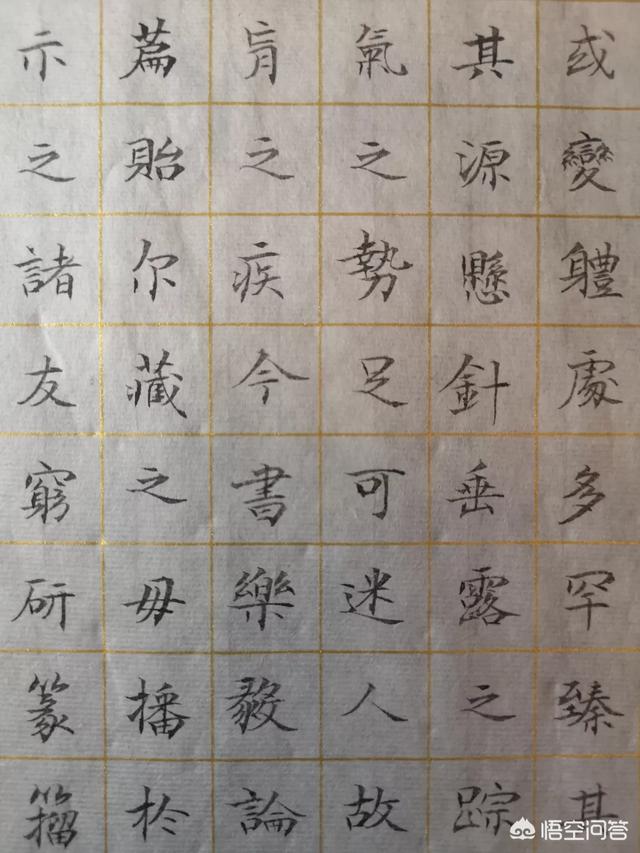 或變軆處多罕臻其
其源懸針垂露之踪
氣之勢足可迷人故
肓之疾今書樂毅論
篇貽尔藏之毋播於
示之諸友窮研篆籀
悟空问答